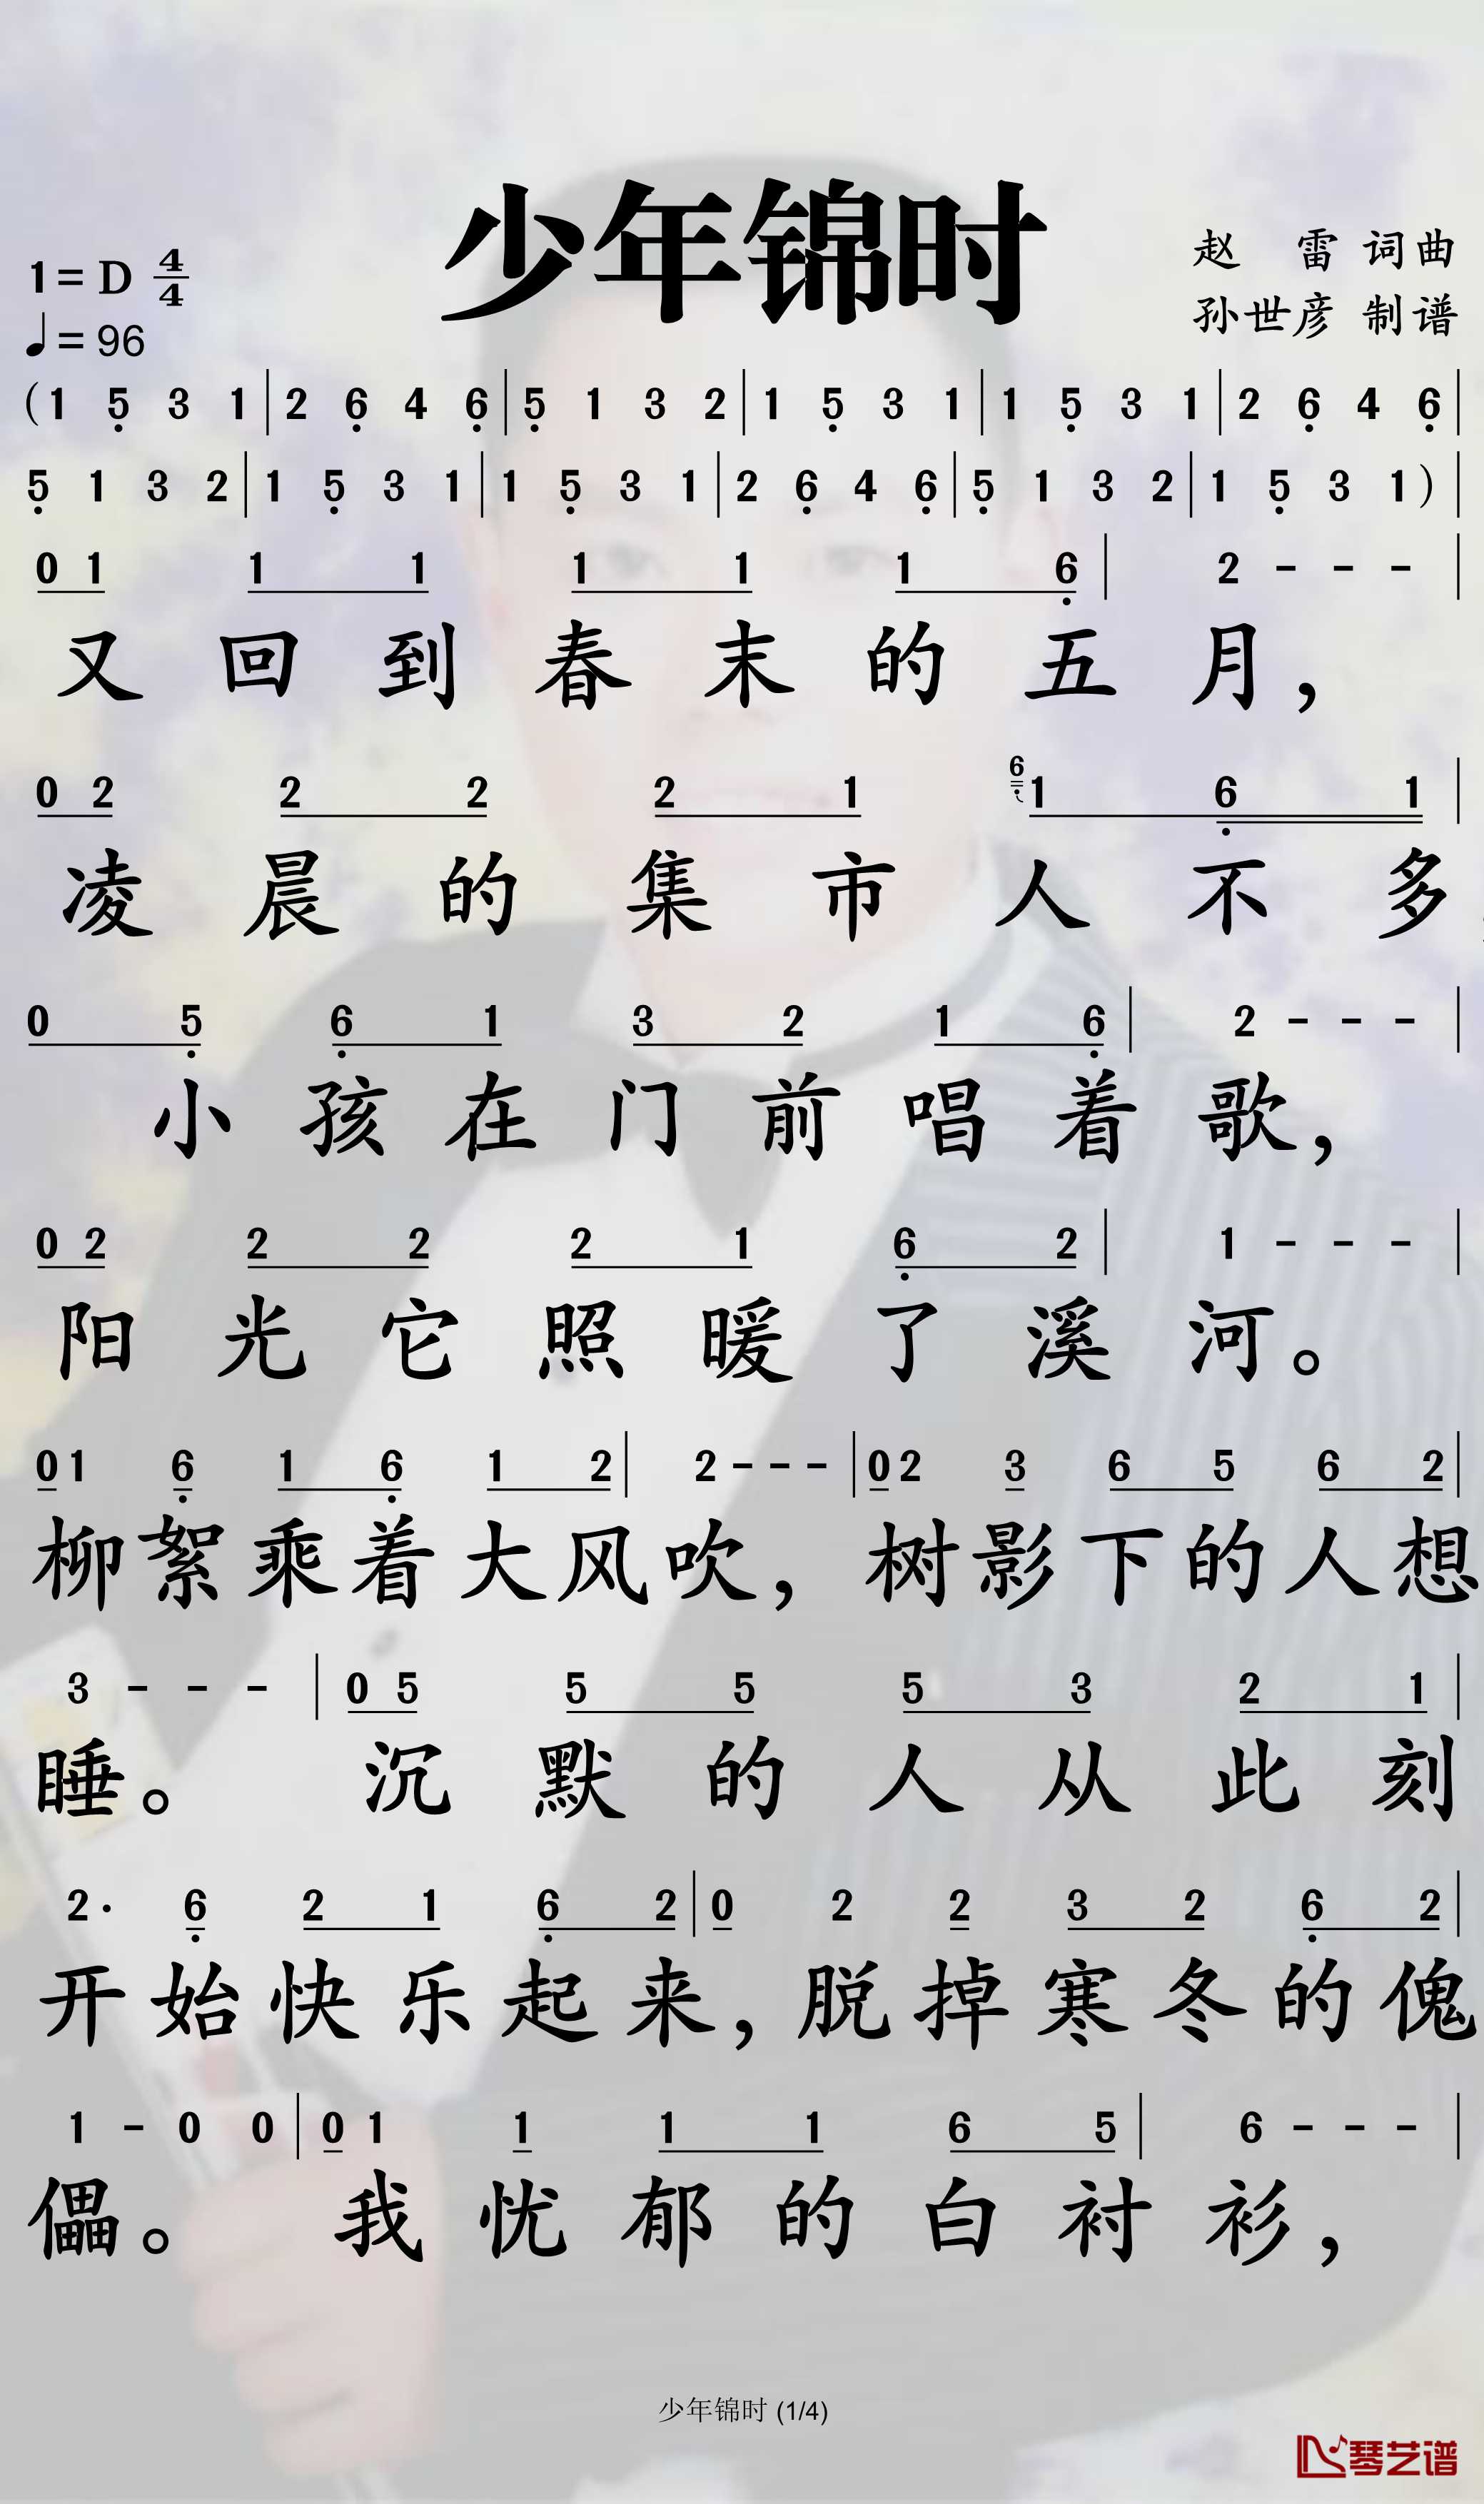 少年锦时
1=D 4/4
赵 雷 词曲
♩=96
孙世彦 制谱
(1 5̣ 3 1 | 2 6̣ 4 6̣ | 5̣ 1 3 2 | 1 5̣ 3 1 | 1 5̣ 3 1 | 2 6̣ 4 6̣ |
5̣ 1 3 2 | 1 5̣ 3 1 | 1 5̣ 3 1 | 2 6̣ 4 6̣ | 5̣ 1 3 2 | 1 5̣ 3 1) |
0 1 1 1 1 1 1 6̣ | 2 - - - |
又回到春末的五月，
0 2 2 2 2 1 6̣ 1 6̣ 1 |
凌晨的集市人不多
0 5̣ 6̣ 1 3 2 1 6̣ | 2 - - - |
小孩在门前唱着歌，
0 2 2 2 2 1 6̣ 2 | 1 - - - |
阳光它照暖了溪河。
0 1 6̣ 1 6̣ 1 2 | 2 - - - | 0 2 3 6 5 6 2 |
柳絮乘着大风吹，树影下的人想
3 - - - | 0 5 5 5 5 3 2 1 |
睡。 沉默的人从此刻
2· 6̣ 2 1 6̣ 2 | 0 2 2 3 2 6̣ 2 |
开始快乐起来，脱掉寒冬的傀
1 - 0 0 | 0 1 1 1 1 6 5 | 6 - - - |
儡。 我忧郁的白衬衫，
少年锦时 (1/4)
琴艺谱